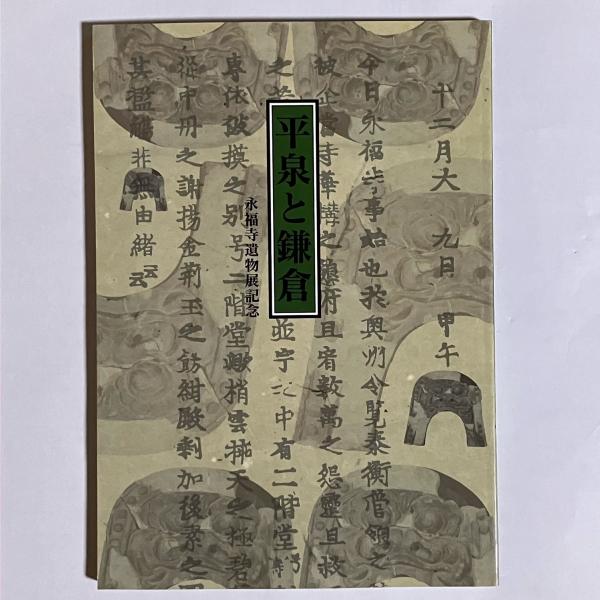 平泉と鎌倉
永福寺遺物展記念
十二月大 九日 甲午
今日永福寺事始也於奥州令覧泰衡管領之
被企当寺華構之懇府且宥数萬之怨霊且救
之
並宇之中有二階堂
専依破摸之別号二階堂歟梢雲挿天之極碧
従中丹之謝揚金荊玉之餝紺殿剰加後素之
其濫觴非無由緒云云